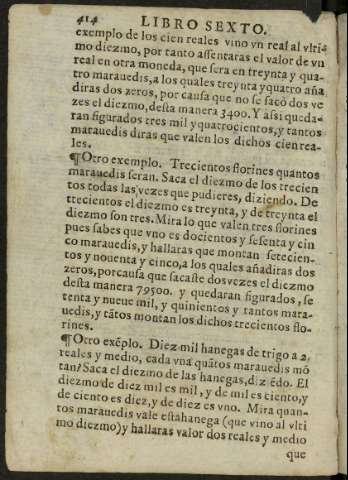 414 LIBRO SEXTO.
exemplo de los cien reales vino vn real al vlti-
mo diezmo, por tanto assentaras el valor de vn
real en otra moneda, que sera en treynta y qua-
tro marauedis, a los quales treynta y quatro aña
diras dos zeros, por causa que no se sacó dos ve
zes el diezmo, desta manera 3400. Y assi queda-
ran figurados tres mil y quatrocientos, y tantos
marauedis diras que valen los dichos cien rea-
les.
¶Otro exemplo. Trecientos florines quantos
marauedis seran. Saca el diezmo de los trecien
tos todas las vezes que pudieres, diziendo. De
trecientos el diezmo es treynta, y de treynta el
diezmo son tres. Mira lo que valen tres florines
pues sabes que vno es docientos y sesenta y cin
co marauedis, y hallaras que montan setecien-
tos y nouenta y cinco, a los quales añadiras dos
zeros, por causa que sacaste dos vezes el diezmo
desta manera 79500. y quedaran figurados, se
tenta y nueue mil, y quinientos y tantos mara-
uedis, y tãtos montan los dichos trecientos flo-
rines.
¶Otro exẽplo. Diez mil hanegas de trigo a 2.
reales y medio, cada vna quãtos marauedis mõ
tan? Saca el diezmo de las hanegas, diziẽdo. El
diezmo de diez mil es mil, y de mil es ciento, y
de ciento es diez, y de diez es vno. Mira quan-
tos marauedis vale esta hanega (que vino al vlti
mo diezmo) y hallaras valor dos reales y medio
que